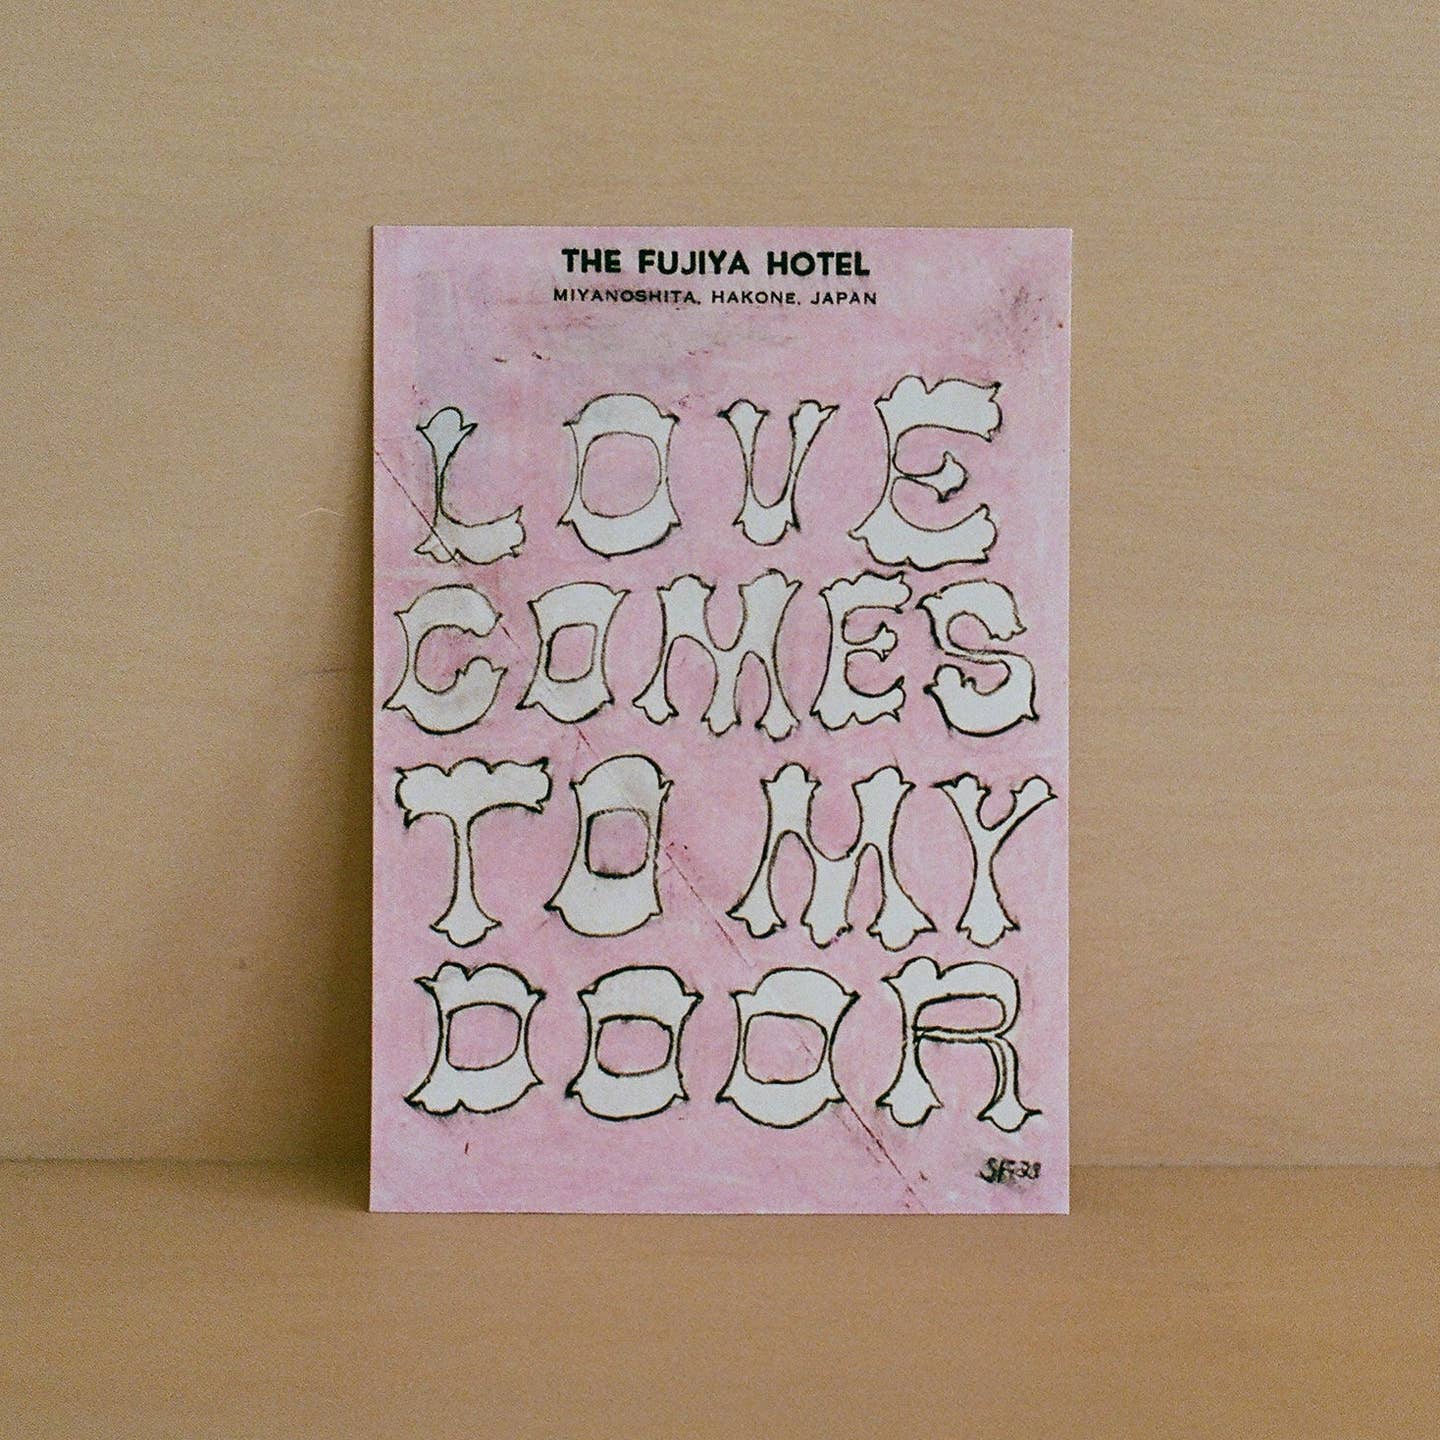 THE FUJIYA HOTEL
MIYANOSHITA, HAKONE, JAPAN
LOVE
COMES
TO MY
DOOR